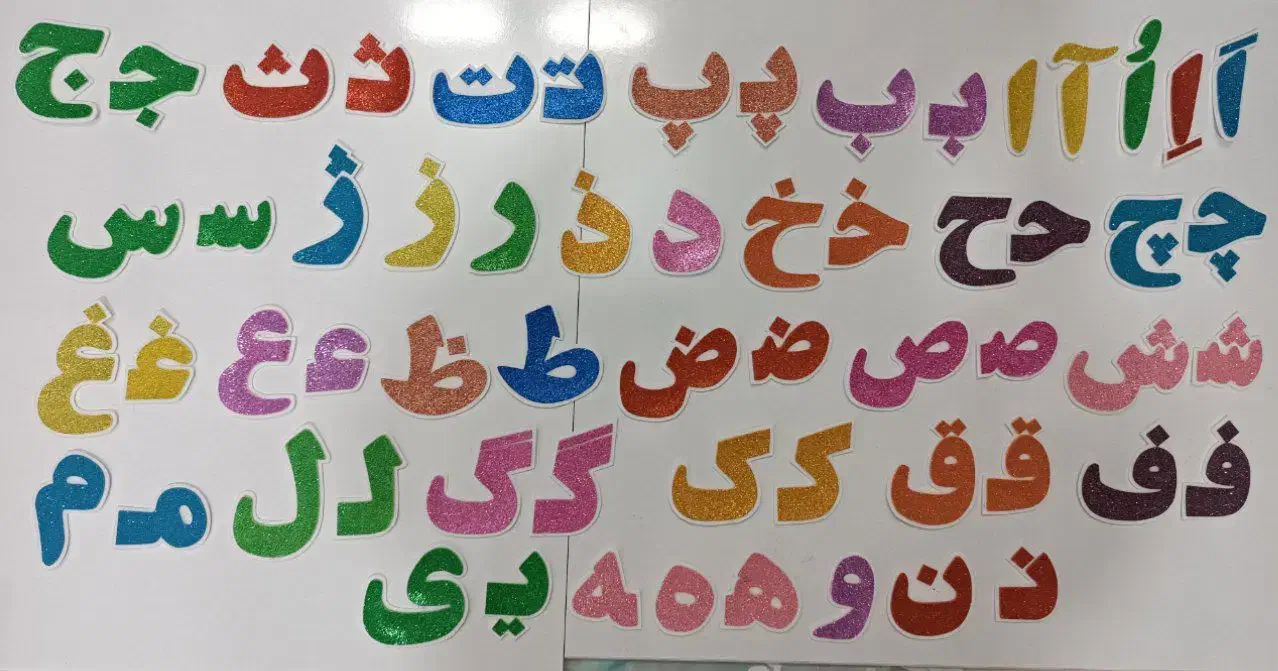 اَ اِ اُ آ ا بـ ب پـ پ تـ ت ثـ ث جـ ج
چـ چ حـ ح خـ خ د ذ ر ز ژ سـ س
شـ ش صـ ص ضـ ض ط ظ عـ ع غـ غ
فـ ف قـ ق کـ ک گـ گ لـ ل مـ م
نـ ن و هـ ه ـه یـ ی